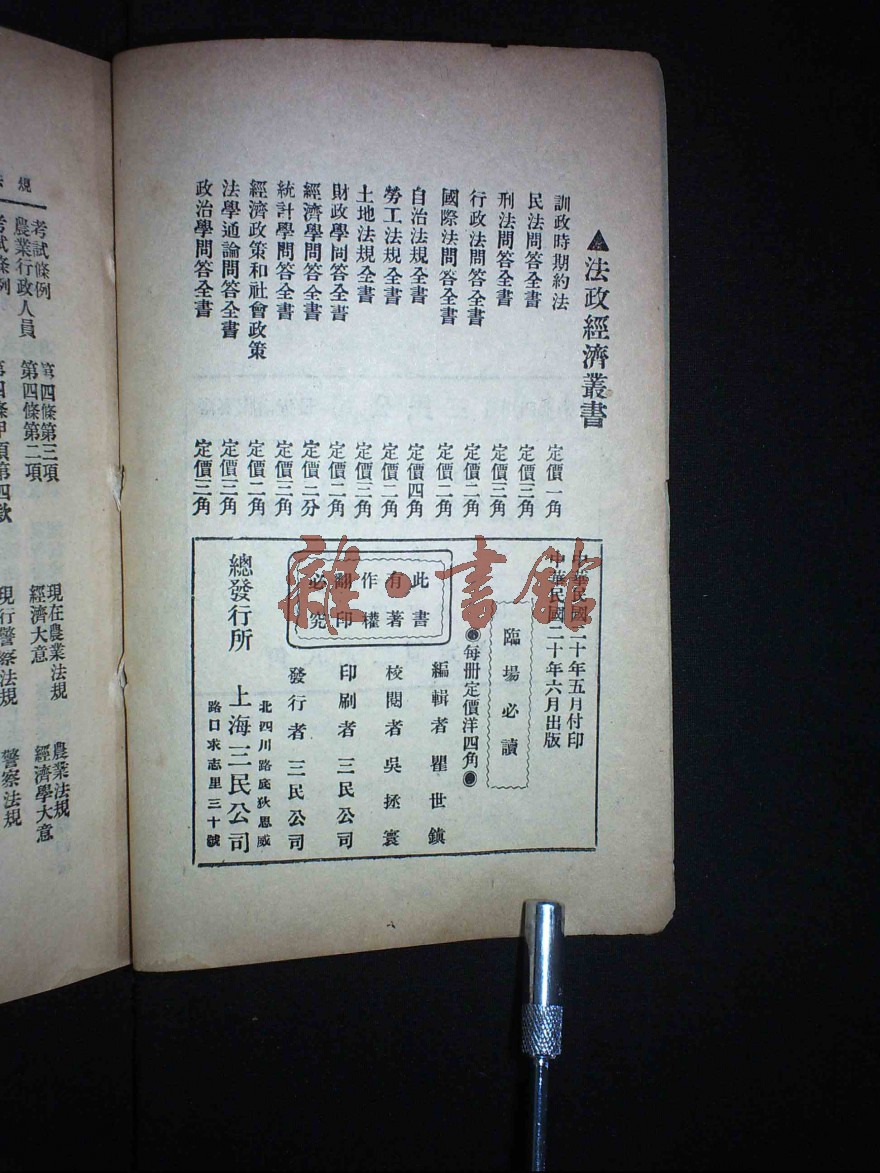 ▲法政經濟叢書
訓政時期約法 定價一角
民法問答全書 定價三角
刑法問答全書 定價三角
行政法問答全書 定價二角
國際法問答全書 定價二角
自治法規全書 定價四角
勞工法規全書 定價二角
土地法規全書 定價三角
財政學問答全書 定價二角
經濟學問答全書 定價二分
統計學問答全書 定價三角
經濟政策和社會政策 定價二角
法學通論問答全書 定價三角
政治學問答全書 定價三角
中華民國二十年五月付印
中華民國二十年六月出版
臨場必讀
●每册定價洋四角●
編輯者 瞿世鎮
校閱者 吳拯寰
印刷者 三民公司
發行者 三民公司
此書
有著
作權
翻印
必究
總發行所 上海三民公司
北四川路底狄思威
路口求志里三十號
雜·書館
規
考試條例 第四條第三項 現在農業法規 農業法規
農業行政人員 第四條第二項 經濟大意 經濟學大意
考試條例 第四條甲項第四款 現行警察法規 警察法規